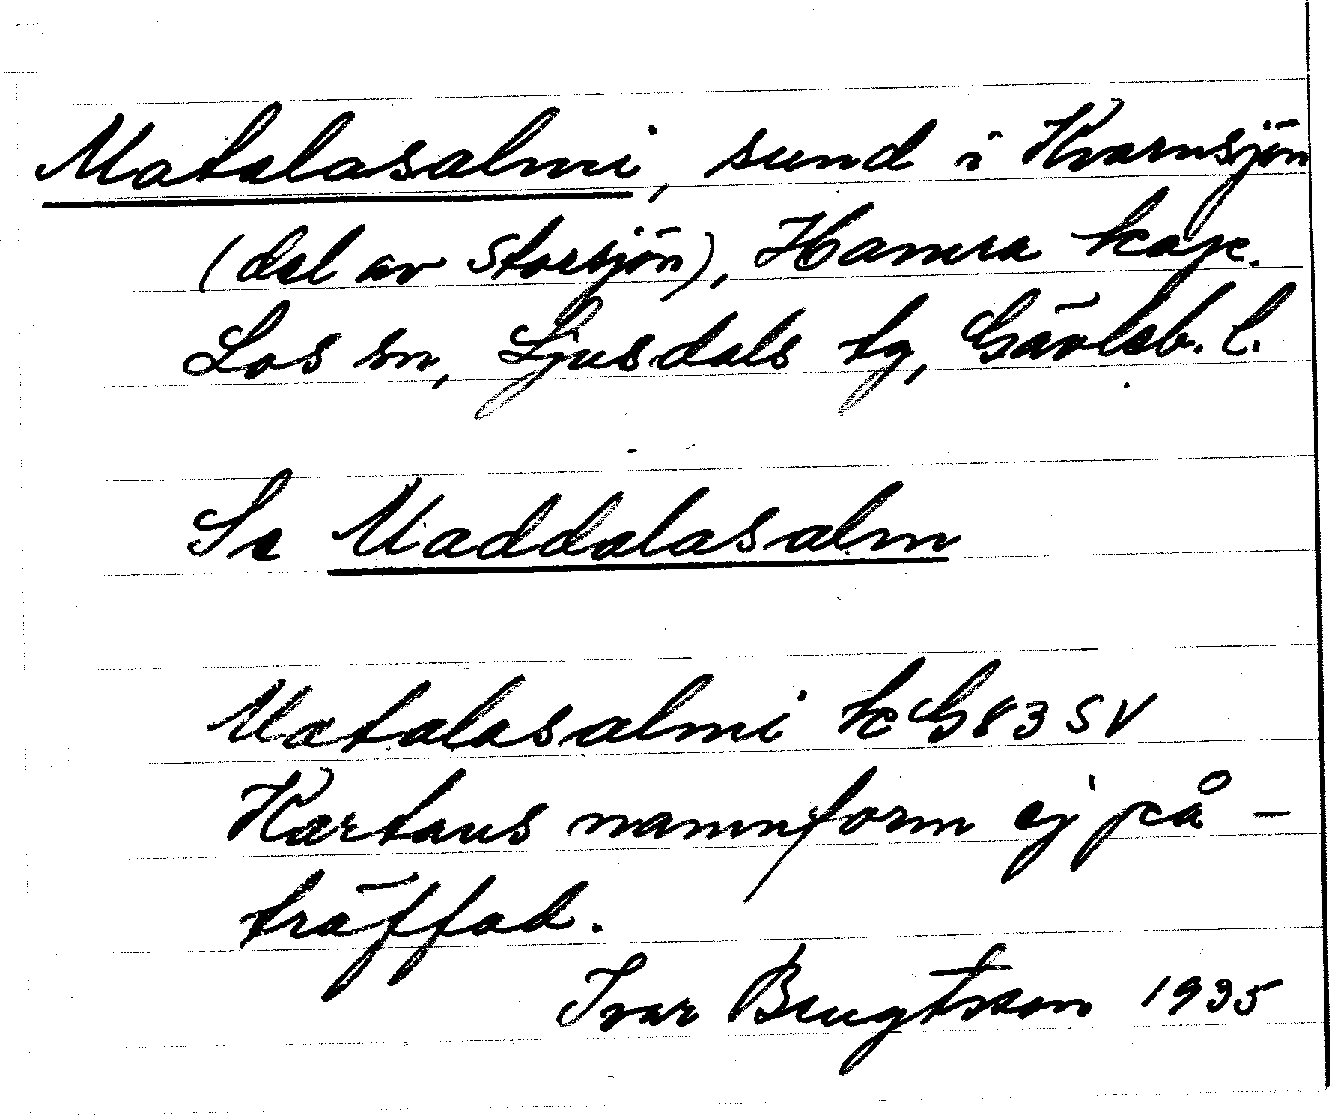 Matalasalmi, sund i Kvarnsjön
(del av Storsjön), Hamra kape.
Los sn, Ljusdals tg, Gävleb. l.
Se Maddalasalm
Matalasalmi kG83SV
Kartans namnform ej på-
träffad.
Ivar Bengtsson 1935